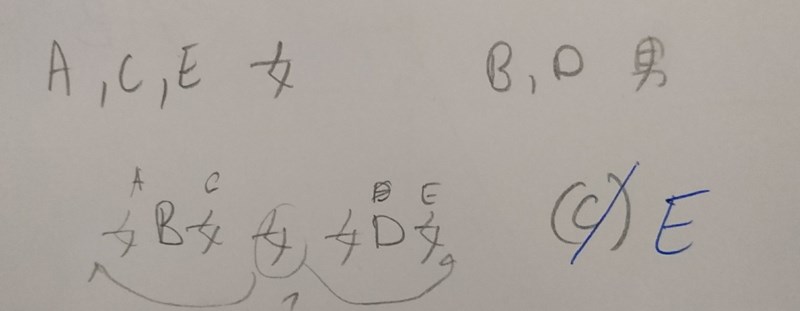 A, C, E 女 B, D 男
A C E
女 B 女 女 女 D 女 (C) E
?